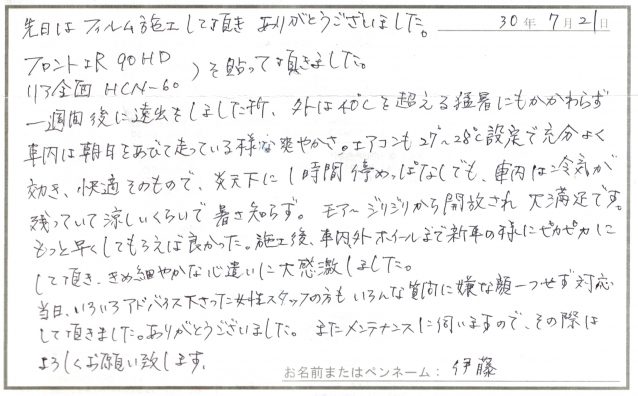 先日はフィルム施工して頂き ありがとうございました。
30年 7月 21日
フロントIR 90HD
リヤ全面 HCN-60
を貼って頂きました。
一週間後に遠出をしました所、外は40℃を超える猛暑にもかかわらず
車内は朝日をあびて走っている様な爽やかさ。エアコンも27°~28℃設定で充分よく
効き、快適そのもので、炎天下に1時間停めっぱなしでも、車内は冷気が
残っていて涼しいくらいで暑さ知らず。モアージリジリから開放され大満足です。
もっと早くしてもらえば良かった。施工後、車内外ホイールまで新車の様にピカピカに
して頂き、きめ細やかな心遣いに大感激しました。
当日、いろいろアドバイス下さった女性スタッフの方もいろんな質問に嫌な顔一つせず対応
して頂きました。ありがとうございました。またメンテナンスに伺いますので、その際は
よろしくお願い致します。
お名前またはペンネーム: 伊藤